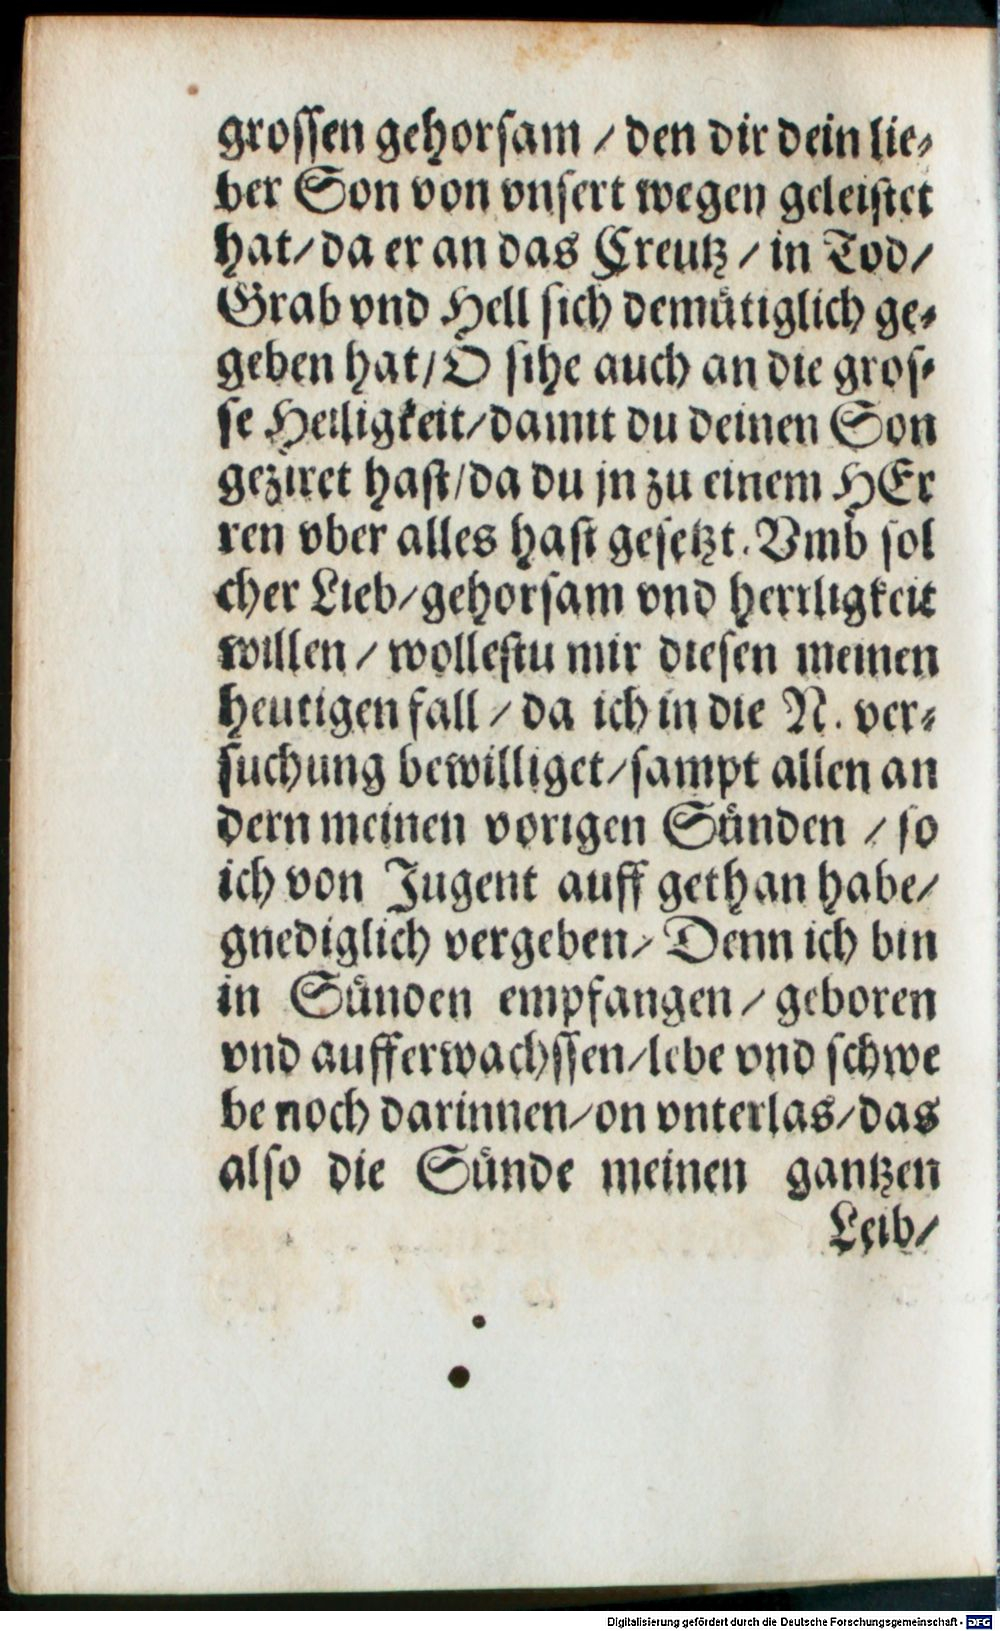 grossen gehorsam / den dir dein lie-
ber Son von vnsert wegen geleistet
hat/ da er an das Creutz / in Tod/
Grab vnd Hell sich demütiglich ge-
geben hat/ O sihe auch an die gros-
se Heiligkeit/ damit du deinen Son
geziret hast/ da du jn zu einem HEr
ren vber alles hast gesetzt. Vmb sol
cher Lieb/ gehorsam vnd herrligkeit
willen / wollestu mir diesen meinen
heutigen fall / da ich in die N. ver-
suchung bewilliget/ sampt allen an
dern meinen vorigen Sünden / so
ich von Jugent auff gethan habe/
gnediglich vergeben/ Denn ich bin
in Sünden empfangen / geboren
vnd aufferwachssen/ lebe vnd schwe
be noch darinnen/ on vnterlas/ das
also die Sünde meinen gantzen
Leib/
Digitalisierung gefördert durch die Deutsche Forschungsgemeinschaft - DFG